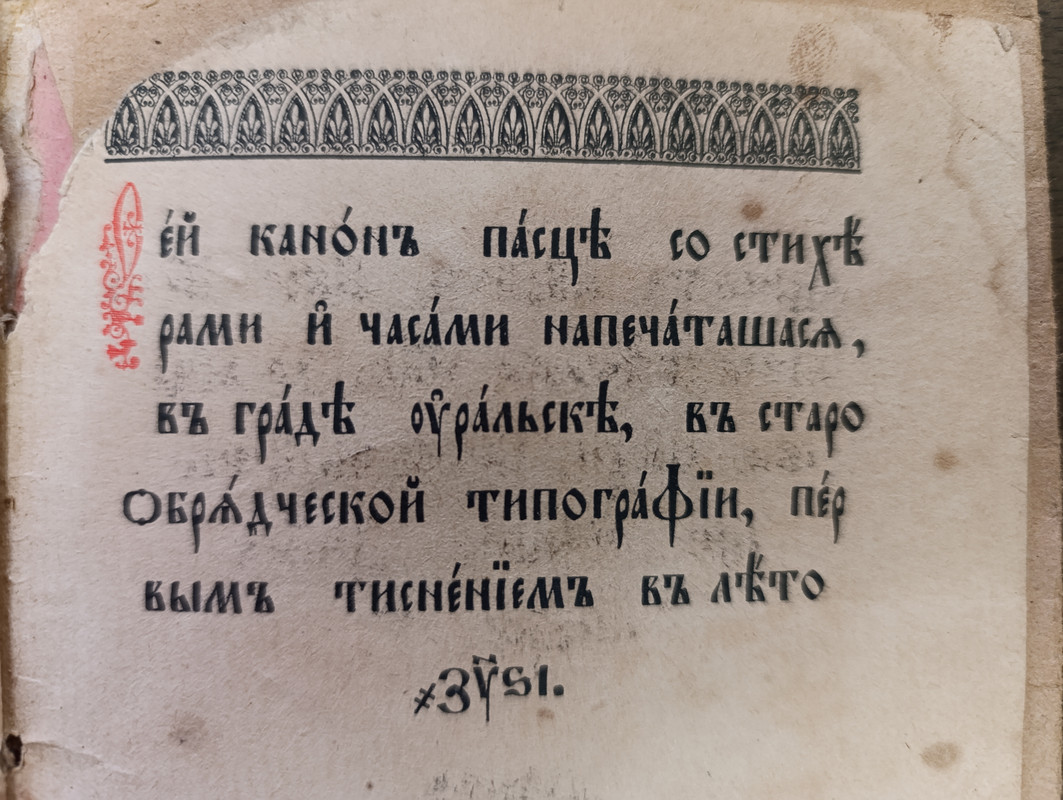 Се́й кано́нъ па́сцѣ со стихѣ́
рами и҆ часа́ми напеча́ташасѧ,
въ гра́дѣ оу҆ра́льскѣ, въ старо
Ѻбрѧ́дческой типогра́фїи, пе́р
вымъ тисне́нїемъ въ лѣ́то
҂зу҃ѕі.